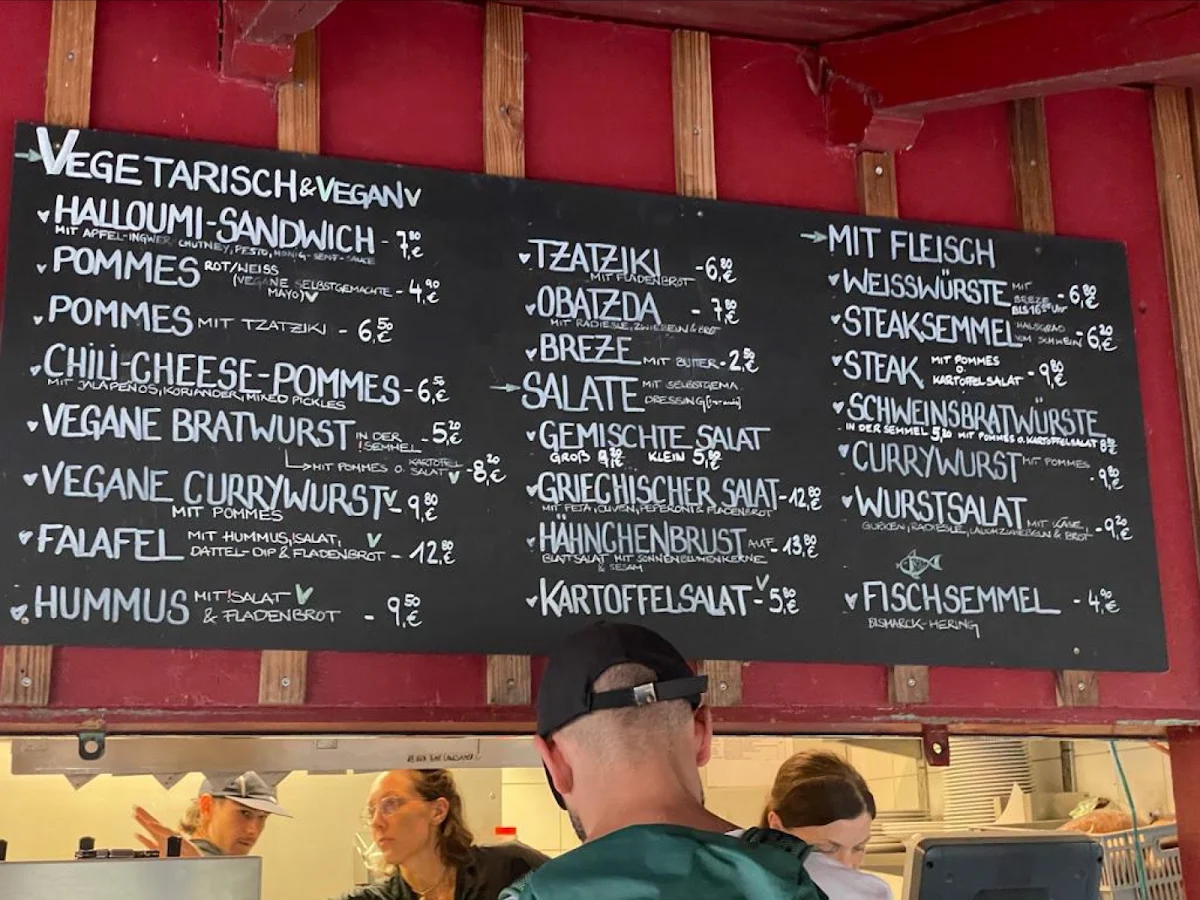 VEGETARISCH & VEGAN V
HALLOUMI-SANDWICH - 7,80 €
MIT APFEL-INGWER CHUTNEY, PESTO, HONIG-SENF-SAUCE
POMMES ROT/WEISS
(VEGANE SELBSTGEMACHTE - 4,90 €
MAYO) V
POMMES MIT TZATZIKI - 6,50 €
CHILI-CHEESE-POMMES - 6,50 €
MIT JALAPENOS, KORIANDER, MIXED PICKLES
VEGANE BRATWURST IN DER - 5,20 €
!SEMMEL
MIT POMMES O. KARTOFFEL
SALAT V - 8,20 €
VEGANE CURRYWURST V - 9,80 €
MIT POMMES
FALAFEL MIT HUMMUS, !SALAT, V
DATTEL-DIP & FLADENBROT - 12,80 €
HUMMUS MIT !SALAT V
& FLADENBROT - 9,50 €
TZATZIKI - 6,80 €
MIT FLADENBROT
OBATZDA - 7,80 €
MIT RADIESLE, ZWIEBELN & BROT
BREZE MIT BUTTER - 2,50 €
SALATE MIT SELBSTGEMA.
DRESSING
GEMISCHTE SALAT
GROß 9,20 € KLEIN 5,80 €
GRIECHISCHER SALAT - 12,80 €
MIT FETA, OLIVEN, PEPERONI & FLADENBROT
HÄHNCHENBRUST AUF - 13,80 €
BLATTSALAT MIT SONNENBLUMENKERNE
& SESAM
KARTOFFELSALAT V - 5,80 €
MIT FLEISCH
WEISSWÜRSTE MIT
BREZE - 6,80 €
BIS 16 UHR
STEAKSEMMEL HALSGRAD
VOM SCHWEIN - 6,20 €
STEAK MIT POMMES
O.
KARTOFFELSALAT - 9,80 €
SCHWEINSBRATWÜRSTE
IN DER SEMMEL 5,20 MIT POMMES O. KARTOFFELSALAT 8,20 €
CURRYWURST MIT POMMES - 9,80 €
WURSTSALAT MIT KÄSE,
GURKEN, RADIESLE, LAUCHZWIEBELN & BROT - 9,20 €
FISCHSEMMEL - 4,90 €
BISMARCK-HERING